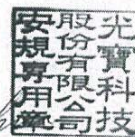 光寶科技
股份有限公司
安規專用章